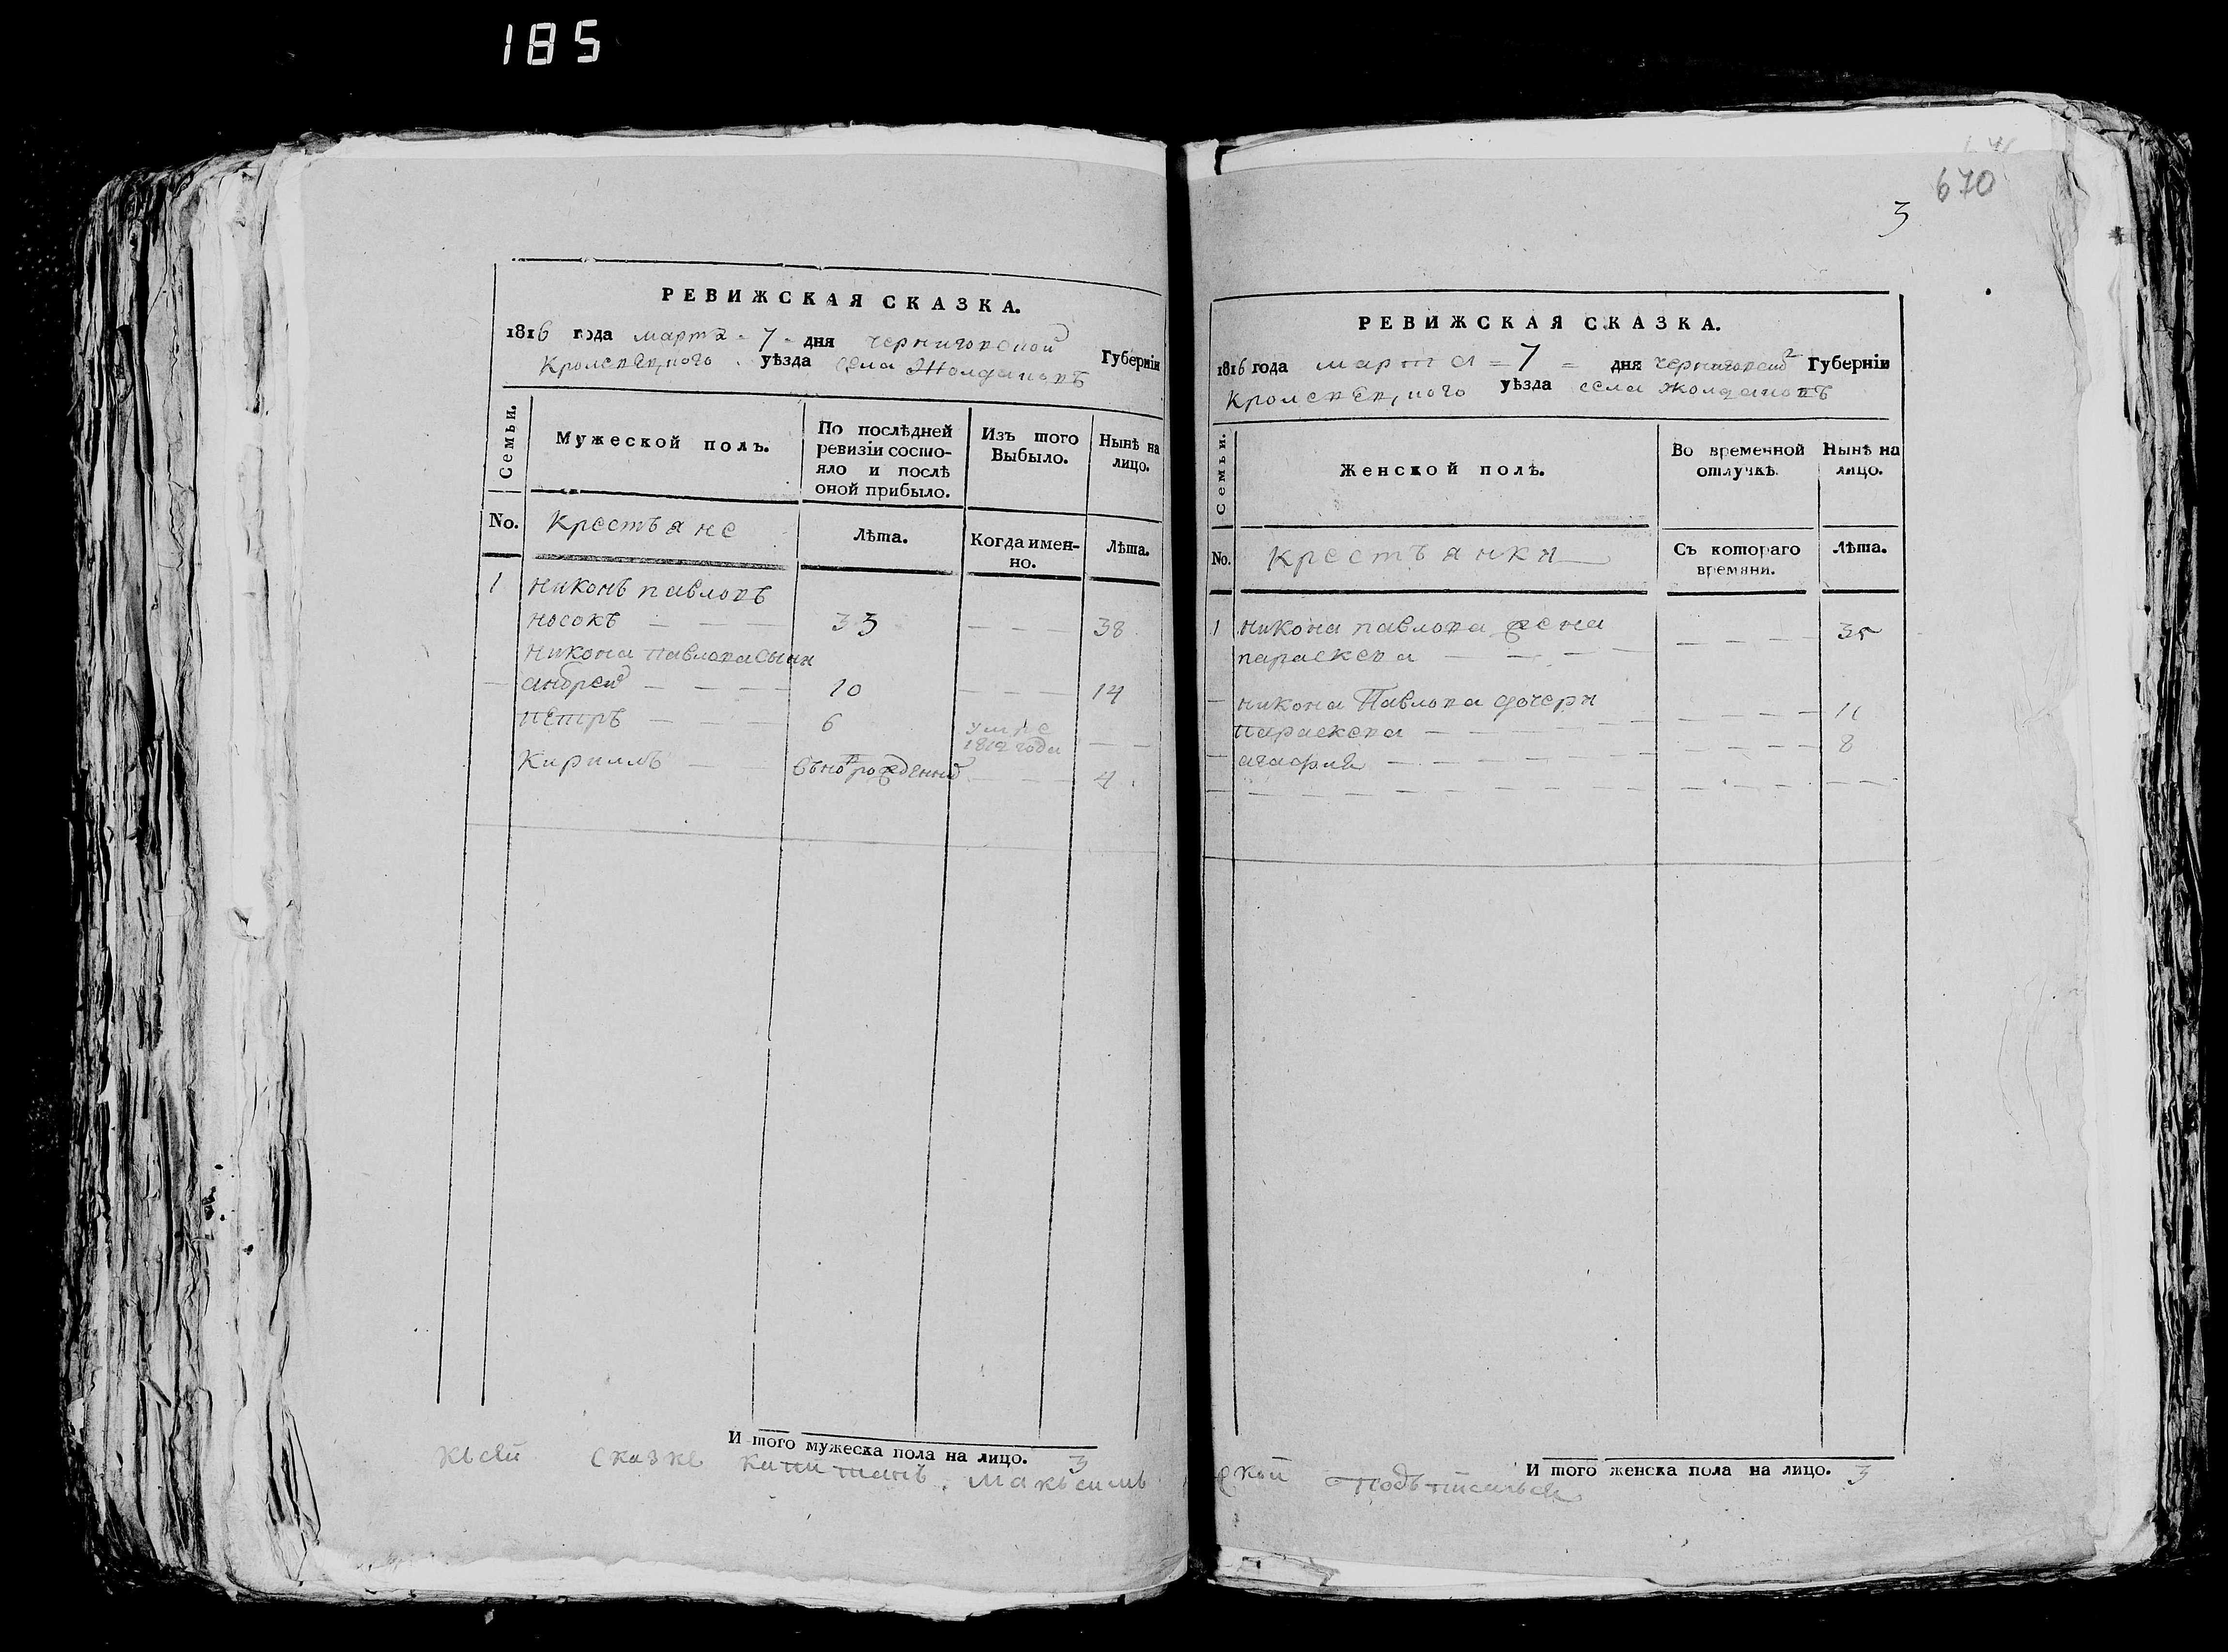 185
РЕВИЖСКАЯ СКАЗКА.
1816 года марта 7 дня черниговской Губерніи
Кролевецкого уѣзда села Жолдаковъ
Семьи.
Мужеской полъ.
По послѣдней ревизіи состояло и послѣ оной прибыло.
Изъ того Выбыло.
Нынѣ на лицо.
No.
Крестъяне
Лѣта.
Когда имен-но.
Лѣта.
1 Никонъ павловъ
носокъ — — — 33 — — — 38
Никона павлова сыни
— андрей — — — — 10 — — — 14
петръ — — — 6 умре 1812 года — —
Кирилъ — — въновърожденный — — — 4
И того мужеска пола на лицо. 3
Ксей сказке капитанъ Максимъ
670
3
РЕВИЖСКАЯ СКАЗКА.
1816 года марта = 7 = дня Губерніи
Кролевецкого уѣзда села жолдаковъ
Семьи.
Женской полъ.
Во временной отлучкѣ.
Нынѣ на лицо.
No.
крестъянки
Съ котораго времяни.
Лѣта.
1 никона павлова жена
параскева — — — — — — — 35
— никона Павлова дочери
параскева — — — — — — — 11
— агафия — — — — — — — 8
И того женска пола на лицо. 3
подъписался